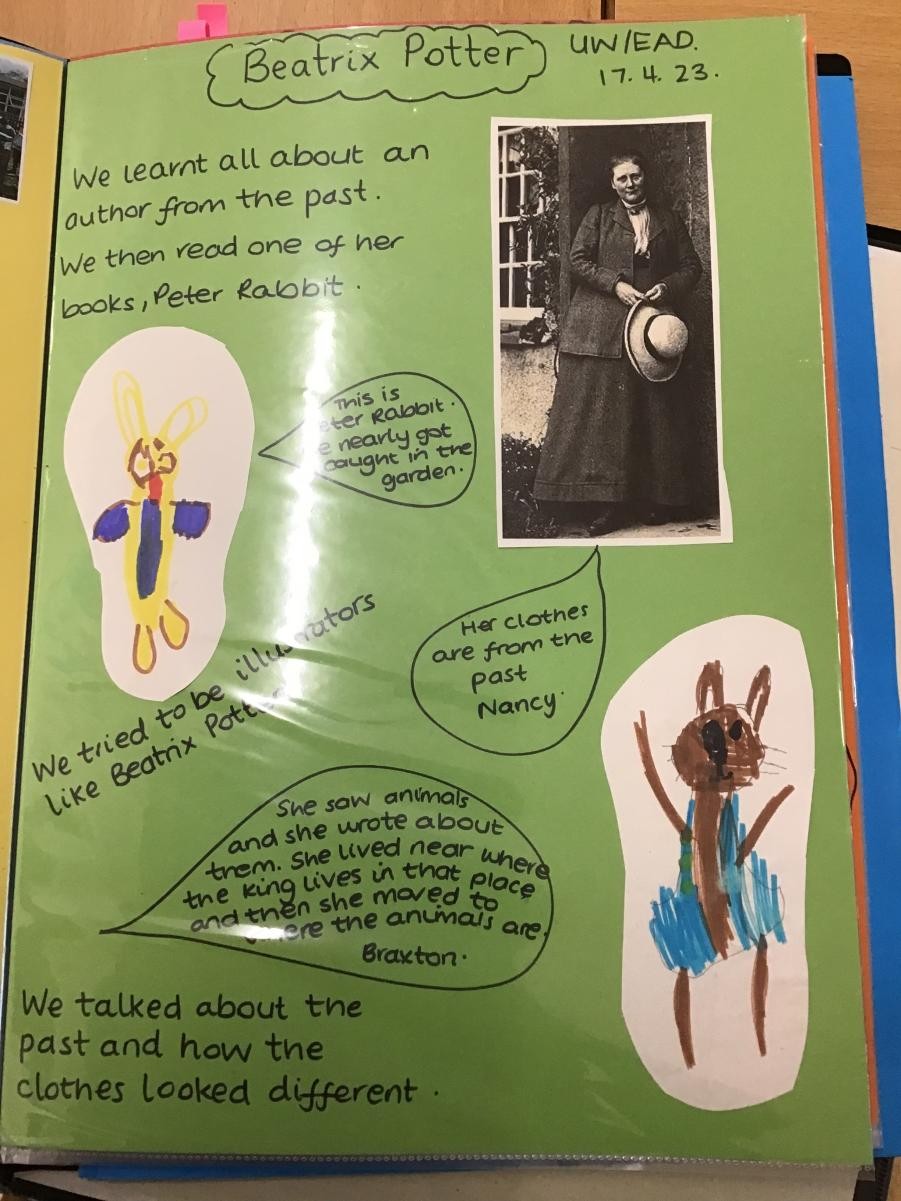 Beatrix Potter
UW/EAD.
17.4.23.
We learnt all about an
author from the past.
We then read one of her
books, Peter Rabbit.
This is
eter Rabbit.
e nearly got
caught in the
garden.
Her clothes
are from the
past
Nancy.
We tried to be illustrators
like Beatrix Potter
She saw animals
and she wrote about
them. She lived near where
the king lives in that place
and then she moved to
where the animals are.
Braxton.
We talked about the
past and how the
clothes looked different.